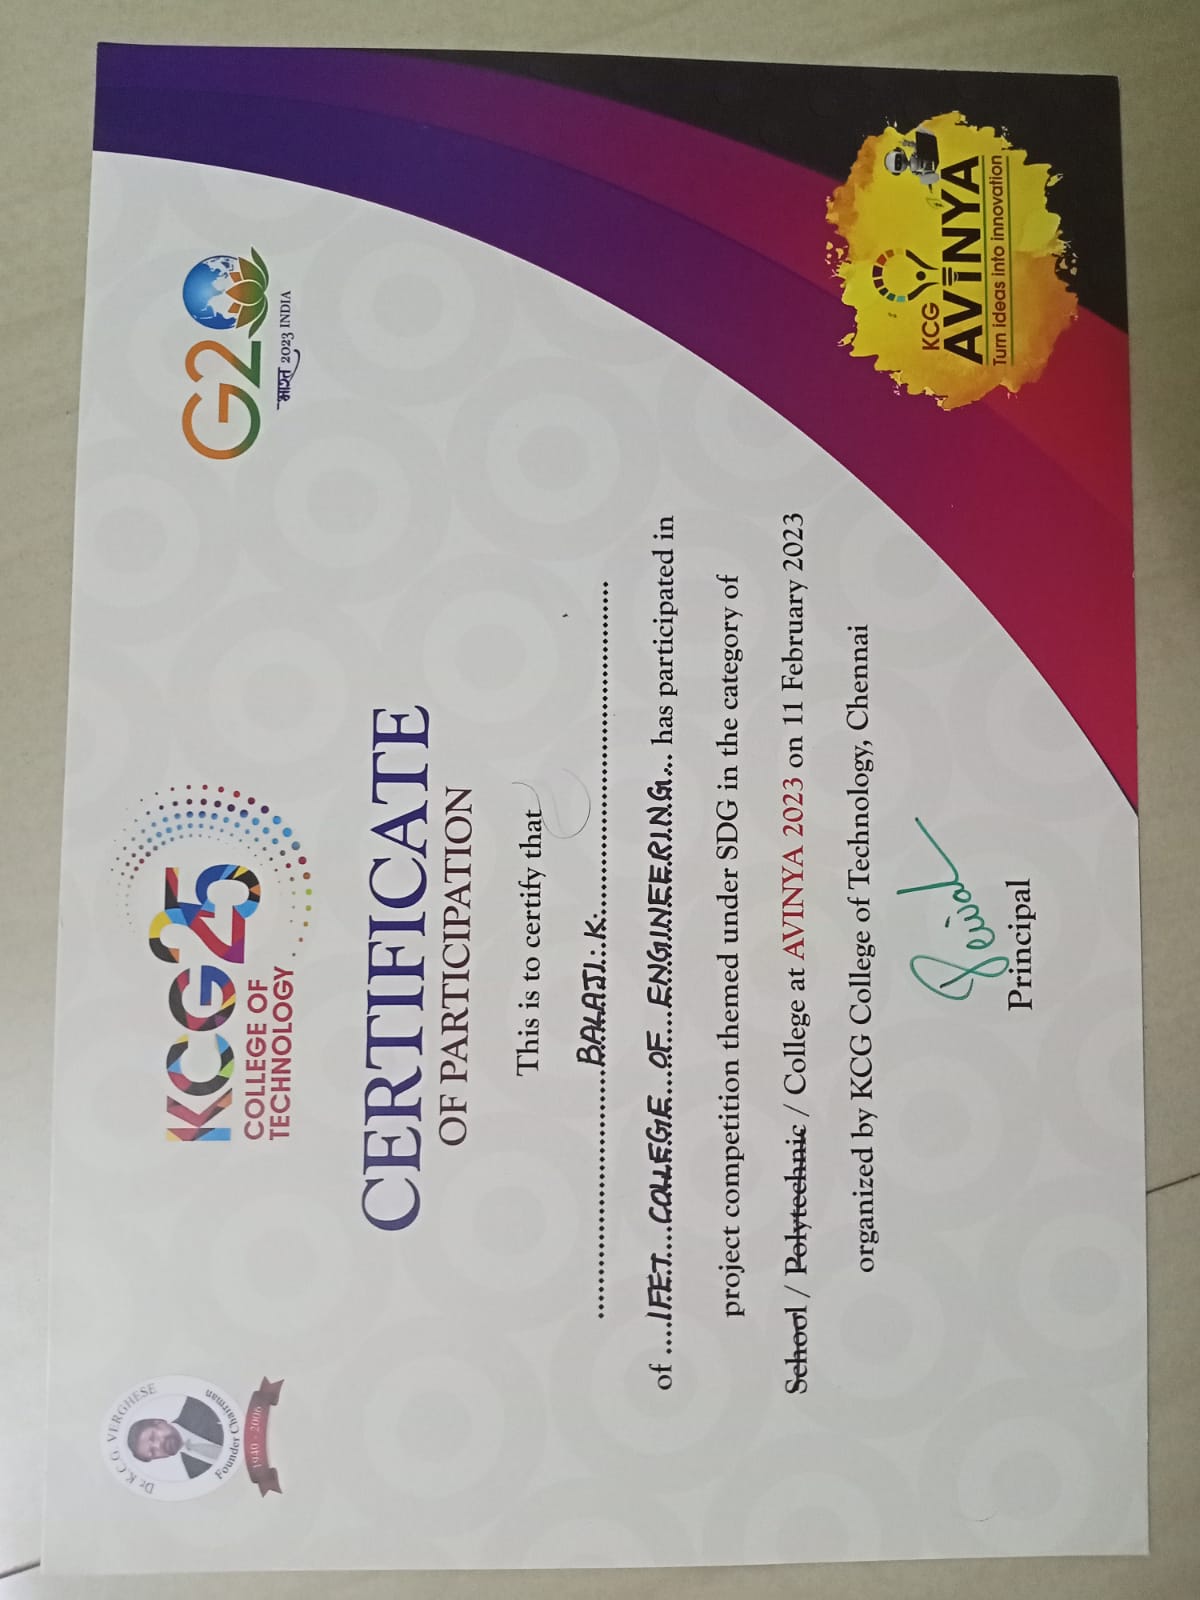 Dr. K.C.G. VERGHESE
Founder Chairman
1940 - 2006
KCG25
COLLEGE OF
TECHNOLOGY
G20
भारत 2023 INDIA
CERTIFICATE
OF PARTICIPATION
This is to certify that
BALAJI. K.
of IFET COLLEGE OF ENGINEERING has participated in
project competition themed under SDG in the category of
School / Polytechnic / College at AVINYA 2023 on 11 February 2023
organized by KCG College of Technology, Chennai
Principal
KCG
AVINYA
Turn ideas into innovation